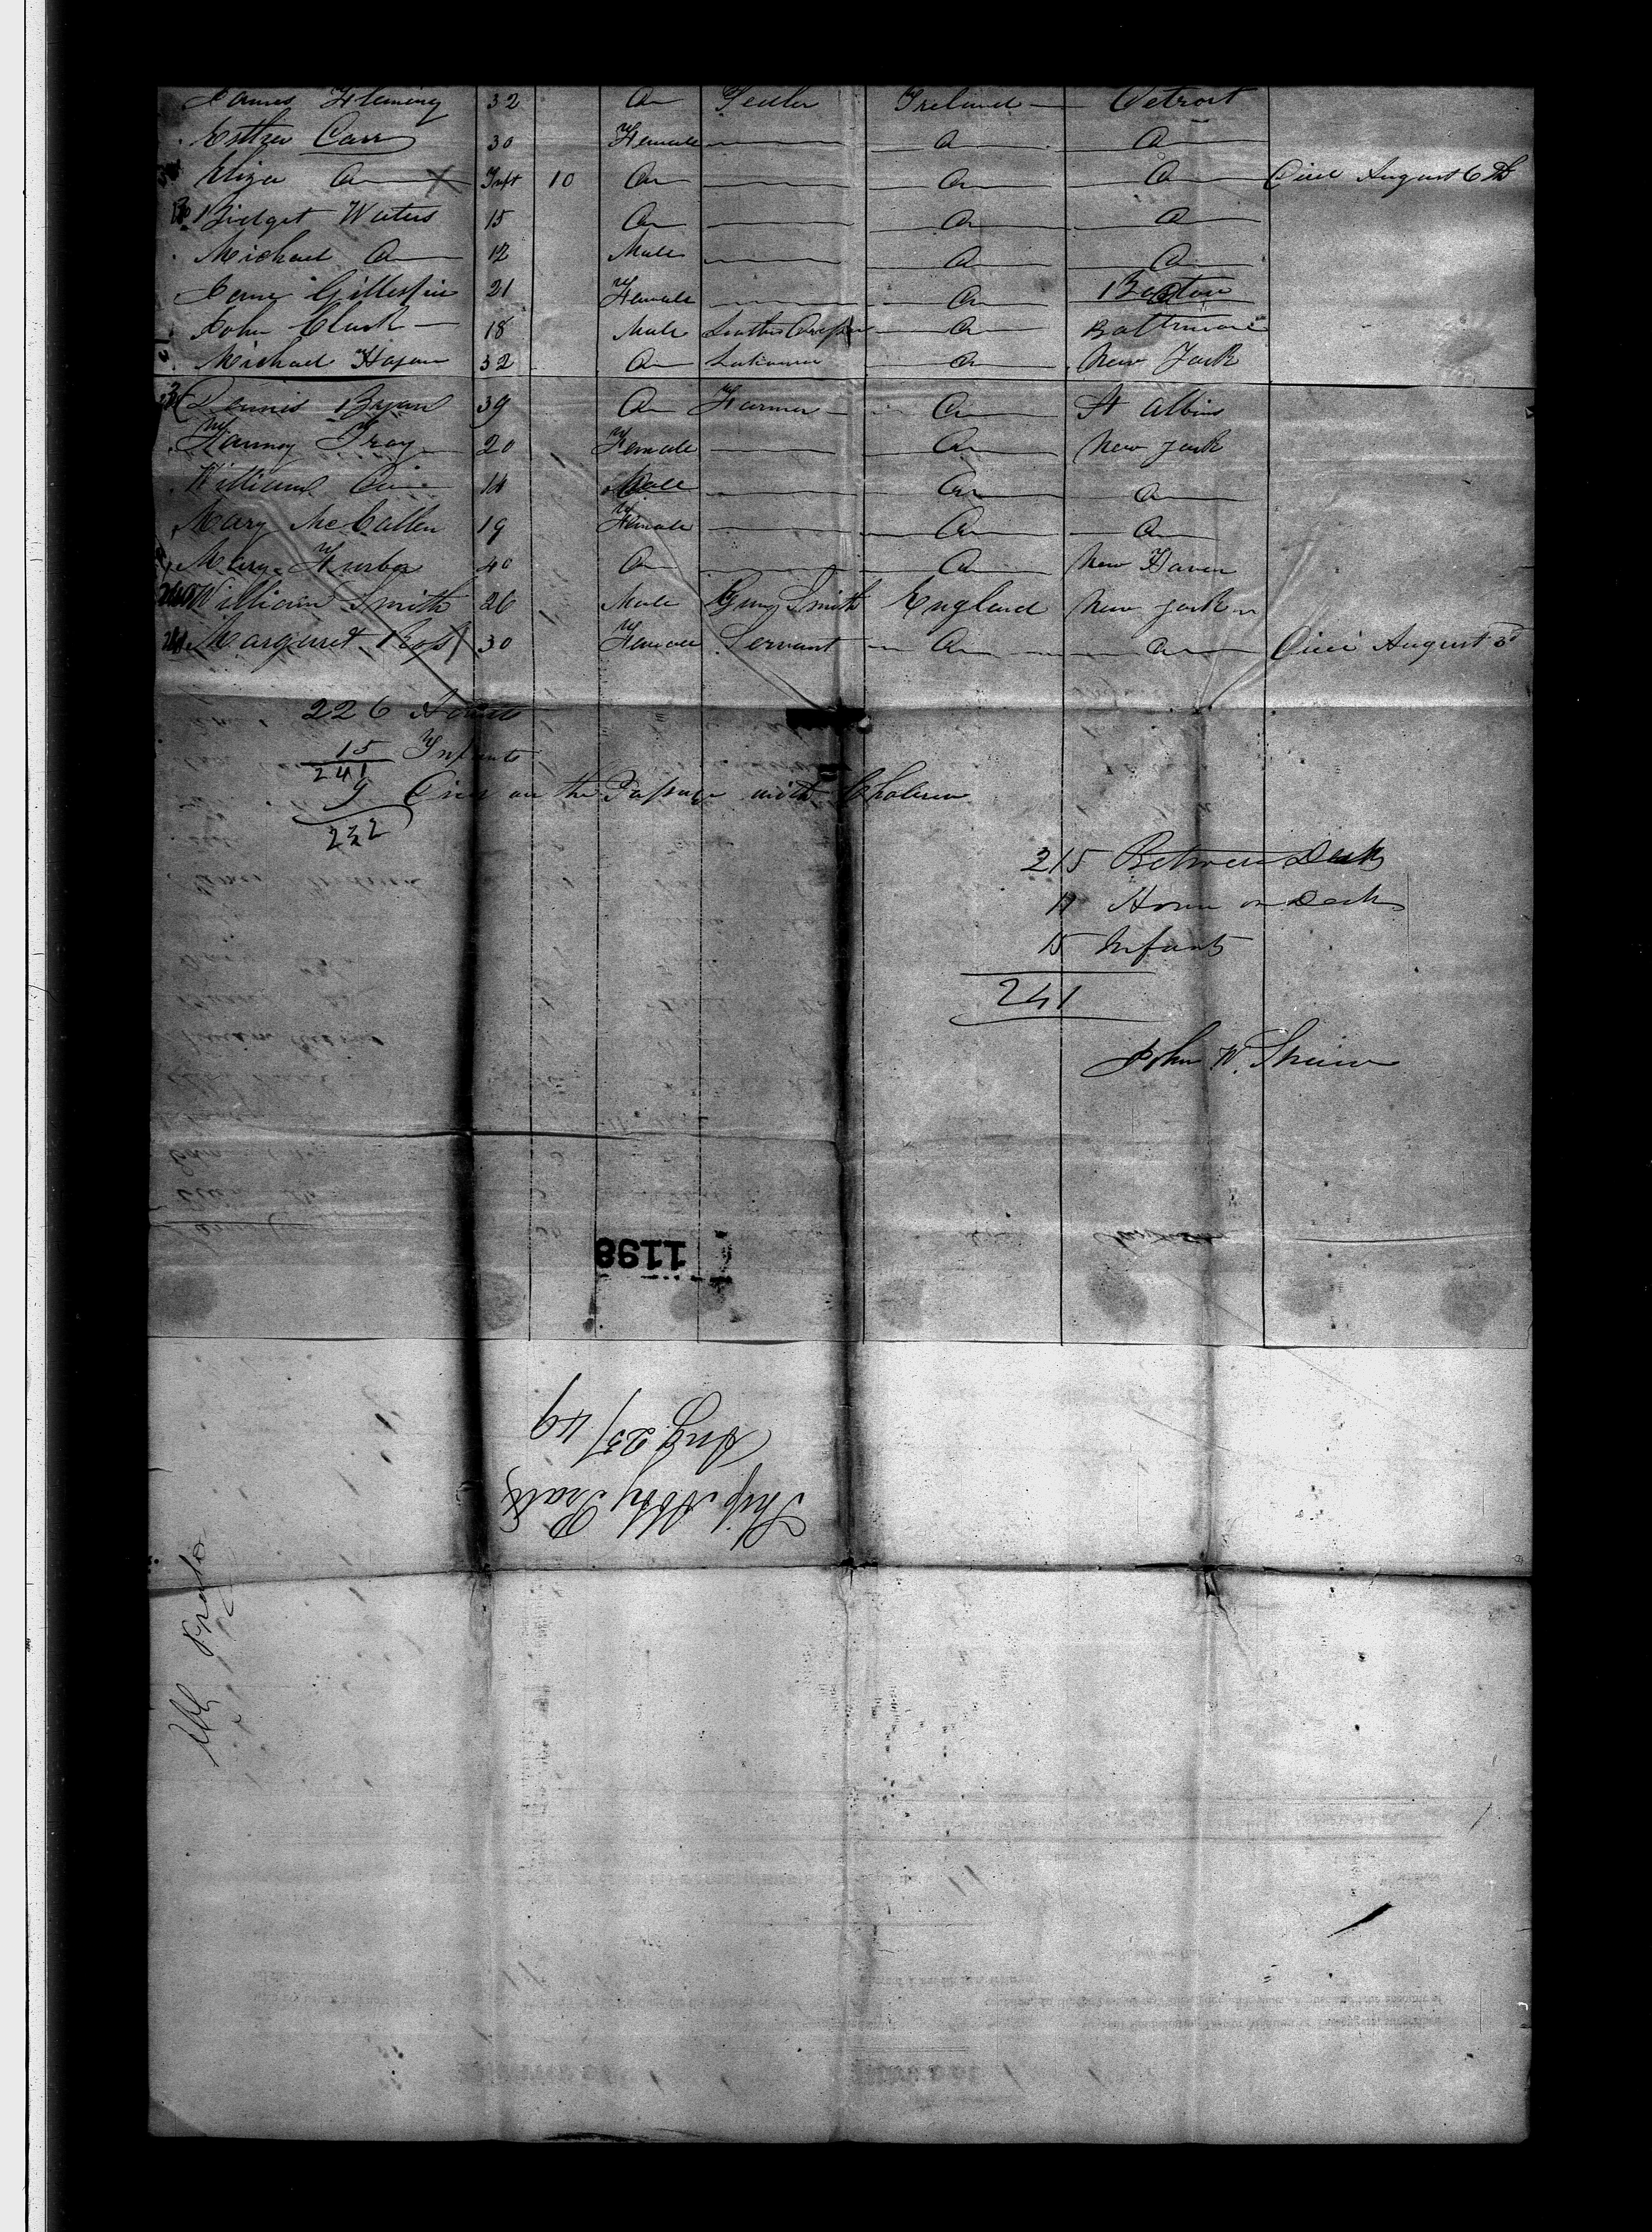 James Fleming 32 Do Pedler Ireland Detroit
Esther Carr 30 Female Do Do
Eliza Do X Inft 10 Do Do Do Died August 6th
Bridget Waters 15 Do Do Do
Michael Do 12 Male Do Do
Jane Gillespie 21 Female Do Boston
John Clark 18 Male Leather Do Baltimore
Michael Hogan 32 Do Do New York
Dennis Bryan 39 Do Farmer Do St Albins
Fanny Troy 20 Female Do New York
William Do 14 Male Do Do
Mary McCallen 19 Female Do Do
Mary 40 Do Do New Haven
240 William Smith 26 Male Gun Smith England New York
241 Margaret Ross X 30 Female Servant Do Do Died August 3d
226 Adults
15 Infants
241
9 Died on the Passage with Cholera
232
215 Between Decks
11 House on Deck
15 Infants
241
John W.
1198
Ship Abby Pratt
Aug 25/49
Abb Pratt